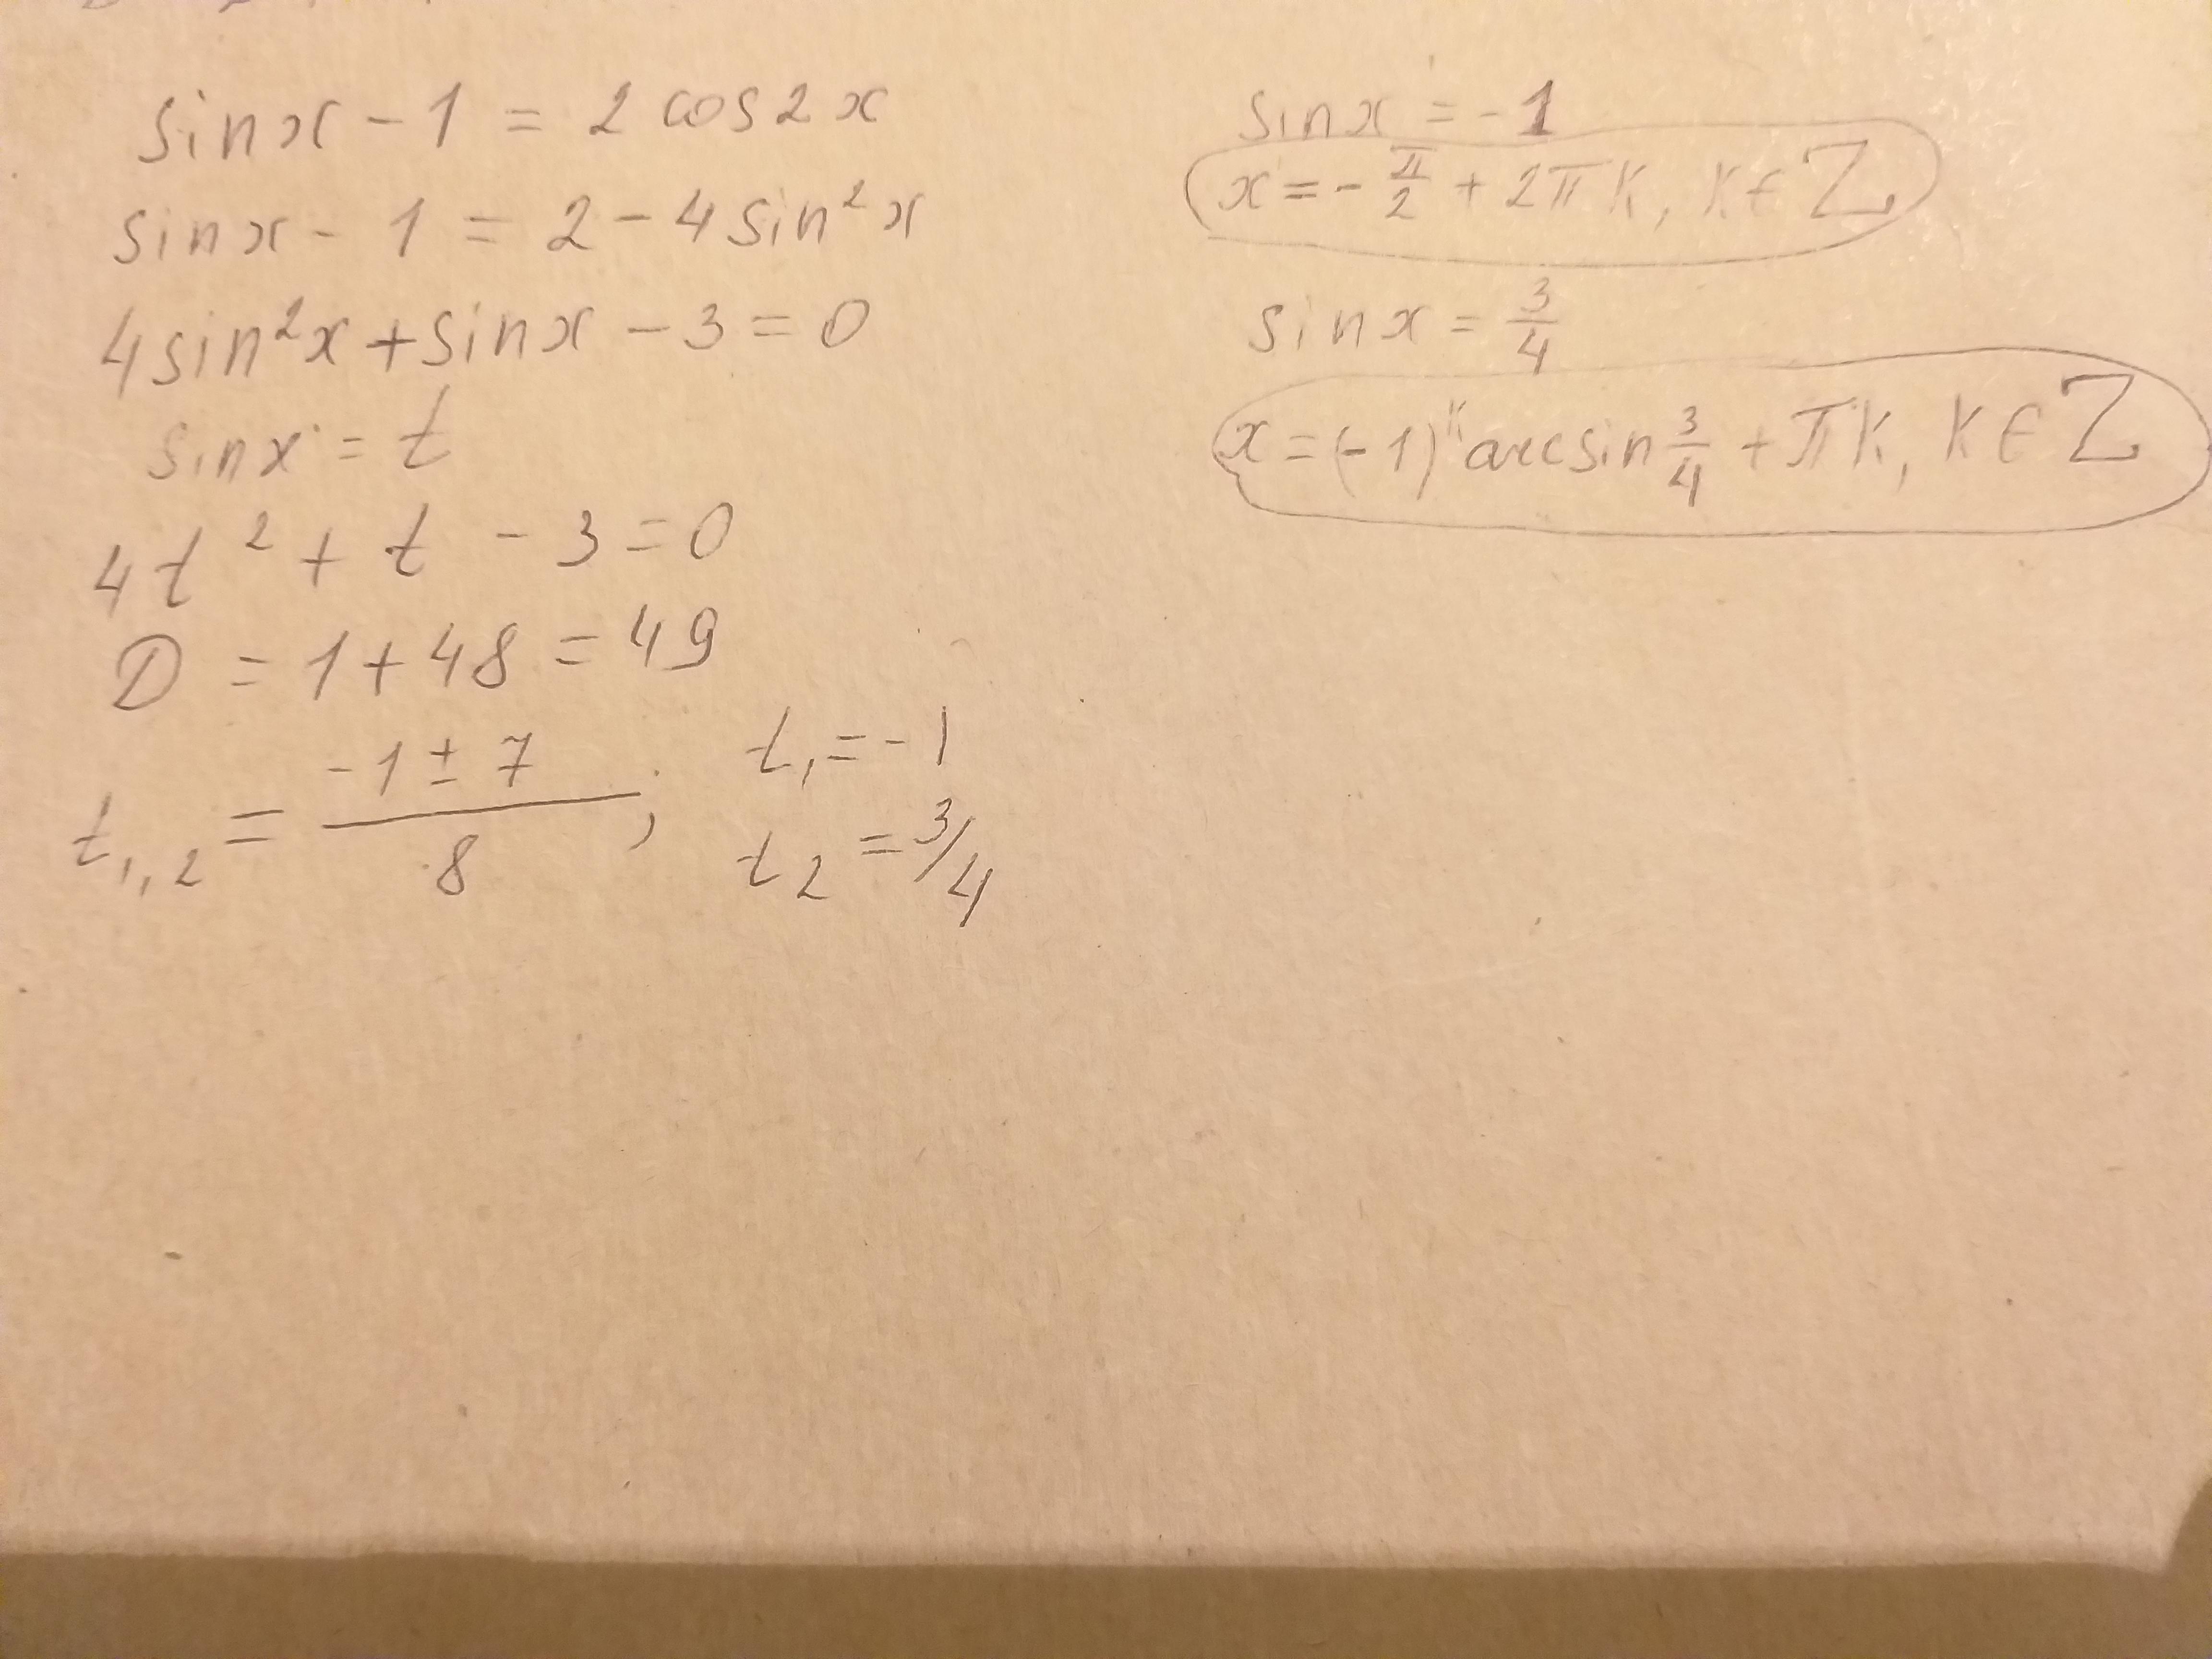 sinx - 1 = 2 cos2x
sinx - 1 = 2 - 4sin²x
4sin²x + sinx - 3 = 0
sinx = t
4t² + t - 3 = 0
D = 1 + 48 = 49
t₁,₂ = (-1 ± 7)/8 ; t₁ = -1
t₂ = 3/4
sinx = -1
x = - π/2 + 2πk, k ∈ Z
sinx = 3/4
x = (-1)ᵏ arcsin 3/4 + πk, k ∈ Z